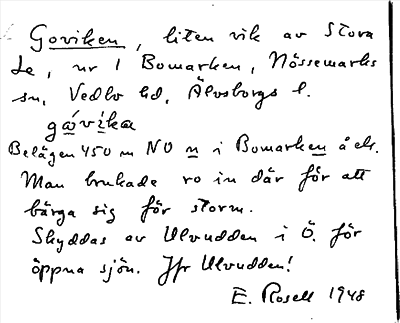 Goviken, liten vik av Stora
Le, nr 1 Bomarken, Nössemarks
sn, Vedbo hd, Älvsborgs l.
gåvika
Belägen 450 m NO n i Bomarken å ek.
Man brukade ro in där för att
bärga sig för storm.
Skyddas av Ulvudden i Ö. för
öppna sjön. Jfr Ulvudden!
E. Rosell 1948